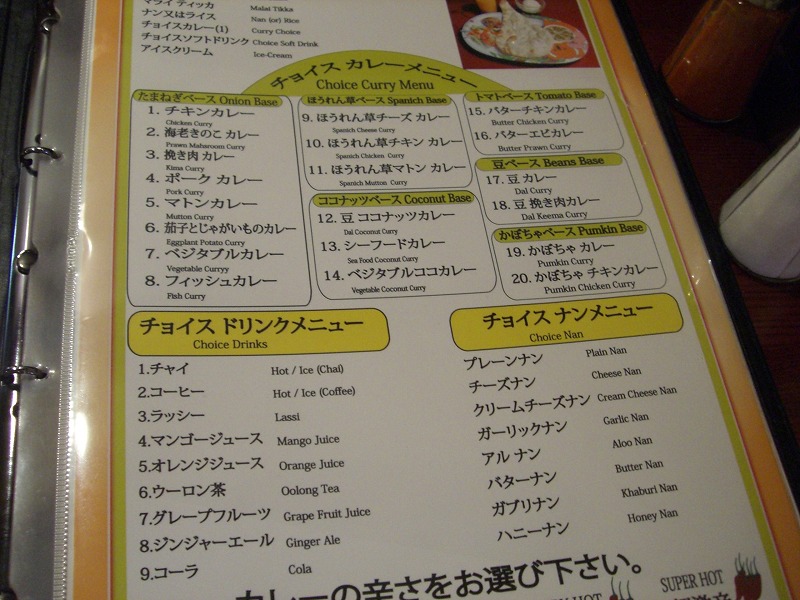 マライ ティッカ Malai Tikka
ナン又はライス Nan (or) Rice
チョイスカレー(1) Curry Choice
チョイスソフトドリンク Choice Soft Drink
アイスクリーム Ice-Cream
チョイス カレーメニュー
Choice Curry Menu
たまねぎベース Onion Base
1. チキンカレー
Chicken Curry
2. 海老きのこ カレー
Prawn Maharoom Curry
3. 挽き肉 カレー
Kima Curry
4. ポーク カレー
Pork Curry
5. マトンカレー
Mutton Curry
6. 茄子とじゃがいものカレー
Eggplant Potato Curry
7. ベジタブルカレー
Vegetable Curryy
8. フィッシュカレー
Fish Curry
ほうれん草ベース Spanich Base
9. ほうれん草チーズ カレー
Spanich Cheese Curry
10. ほうれん草チキン カレー
Spanich Chicken Curry
11. ほうれん草マトン カレー
Spanich Mutton Curry
ココナッツベース Coconut Base
12. 豆 ココナッツカレー
Dal Coconut Curry
13. シーフードカレー
Sea Food Coconut Curry
14. ベジタブルココカレー
Vegetable Coconut Curry
トマトベース Tomato Base
15. バターチキンカレー
Butter Chicken Curry
16. バターエビカレー
Butter Prawn Curry
豆ベース Beans Base
17. 豆 カレー
Dal Curry
18. 豆 挽き肉カレー
Dal Keema Curry
かぼちゃベース Pumkin Base
19. かぼちゃ カレー
Pumkin Curry
20. かぼちゃ チキンカレー
Pumkin Chicken Curry
チョイス ドリンクメニュー
Choice Drinks
1.チャイ Hot / Ice (Chai)
2.コーヒー Hot / Ice (Coffee)
3.ラッシー Lassi
4.マンゴージュース Mango Juice
5.オレンジジュース Orange Juice
6.ウーロン茶 Oolong Tea
7.グレープフルーツ Grape Fruit Juice
8.ジンジャーエール Ginger Ale
9.コーラ Cola
チョイス ナンメニュー
Choice Nan
プレーンナン Plain Nan
チーズナン Cheese Nan
クリームチーズナン Cream Cheese Nan
ガーリックナン Garlic Nan
アル ナン Aloo Nan
バターナン Butter Nan
ガブリナン Khaburi Nan
ハニーナン Honey Nan
カレーの辛さをお選び下さい。
HOT
SUPER HOT